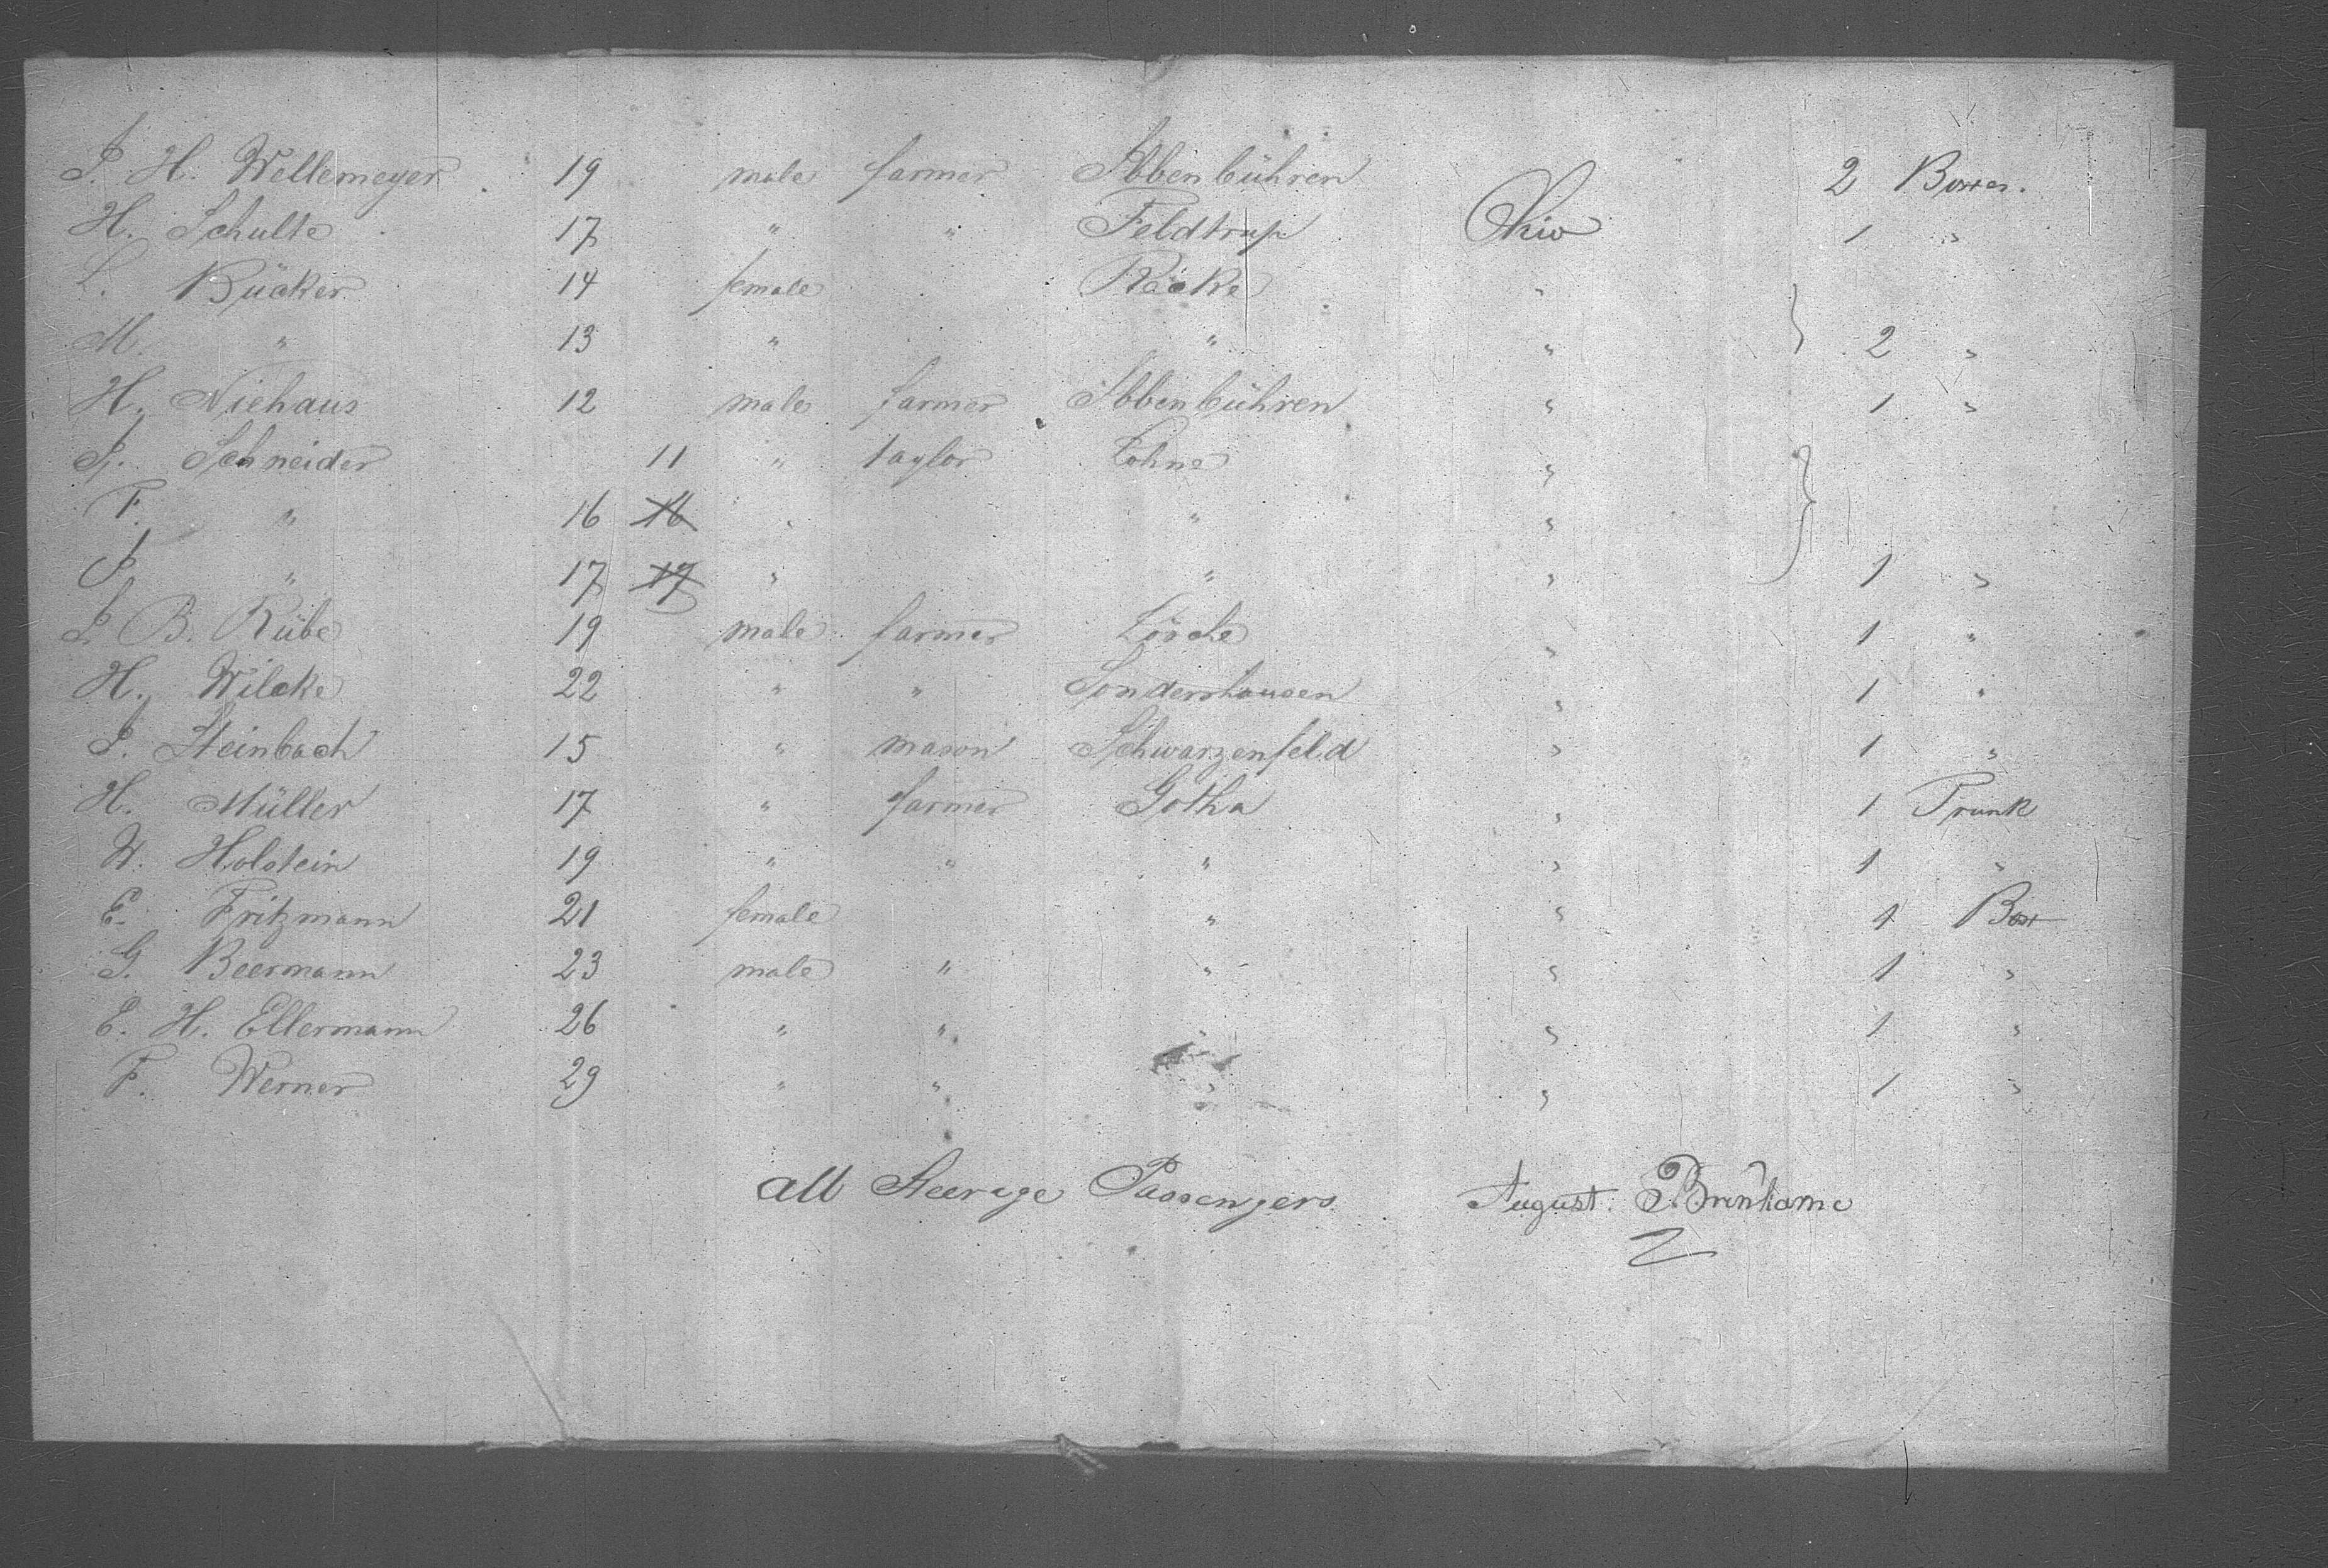 J. H. Wellemeyer 19 male farmer Ibbenbühren 2 Boxes.
H. Schulte 17 " " Feldtrup Ohio 1 "
L. Bücker 14 female Räcke "
M. " 13 " " " } 2 "
H. Niehaus 12 male farmer Ibbenbühren " 1 "
J. Schneider 11 " taylor Lohne "
F. " 16 16 " " " }
J. " 17 17 " " " 1 "
J. B. Rübe 19 male farmer " 1 "
H. Wilcke 22 " " Sondershausen " 1 "
J. Steinbach 15 " mason Schwarzenfeld " 1 "
H. Müller 17 " farmer Gotha " 1 Trunk
W. Holstein 19 " " " " 1 "
E. Fritzmann 21 female " " 1 Box
G. Beermann 23 male " " " 1 "
E. H. Ellermann 26 " " " " 1 "
F. Werner 29 " " " " 1 "
all Steerage Passengers August.